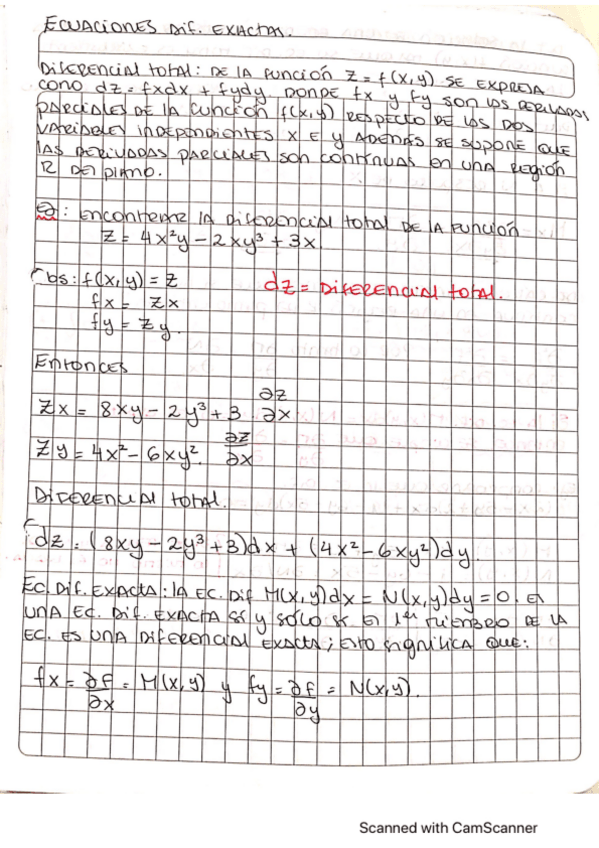 ECUACIONES DIF. EXACTAS.
DIFERENCIAL TOTAL: DE LA FUNCIÓN Z = f(x,y) SE EXPRESA
COMO dz = fxdx + fydy. DONDE fx y fy SON LAS DERIVADAS
PARCIALES DE LA FUNCIÓN f(x,y) RESPECTO DE LAS DOS
VARIABLES INDEPENDIENTES X E y ADEMÁS SE SUPONE QUE
LAS DERIVADAS PARCIALES SON CONTÍNUAS EN UNA REGIÓN
R DEL PLANO.
Ej: ENCONTRAR LA DIFERENCIAL TOTAL DE LA FUNCIÓN
Z = 4x²y − 2xy³ + 3x.
Obs: f(x,y) = Z
dz = DIFERENCIAL TOTAL.
fx = Zx
fy = Zy.
ENTONCES
Zx = 8xy − 2y³ + 3 ∂z/∂x
Zy = 4x² − 6xy². ∂z/∂x
DIFERENCIAL TOTAL.
dz = (8xy − 2y³ + 3)dx + (4x² − 6xy²)dy.
EC. DIF. EXACTA: LA EC. DIF M(x,y)dx = N(x,y)dy = 0. ES
UNA EC. DIF. EXACTA SÍ y SÓLO SI EL 1er MIEMBRO DE LA
EC. ES UNA DIFERENCIAL EXACTA; ESTO SIGNIFICA QUE:
fx = ∂f/∂x = M(x,y) y fy = ∂f/∂y = N(x,y).
Scanned with CamScanner